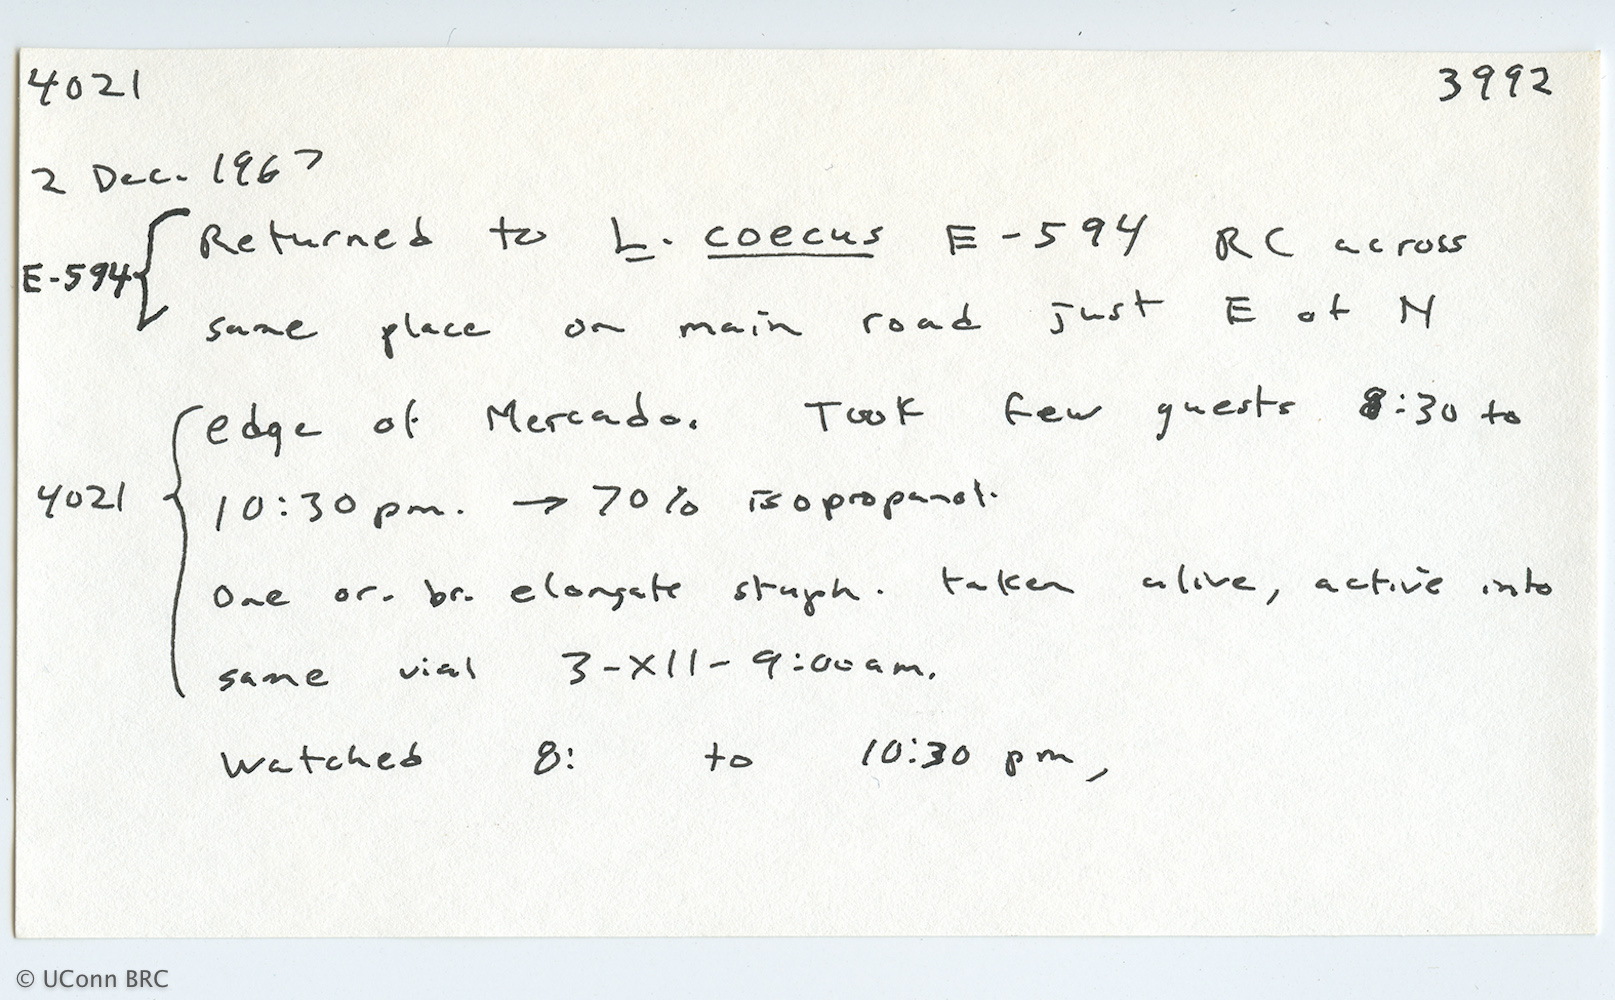 4021 3992
2 Dec. 1967
E-594 { Returned to L. coecus E-594 RC across
same place on main road just E of N
edge of Mercado. Took few guests 8:30 to
4021 { 10:30 pm. → 70% isopropanol.
One or. br. elongate staph. taken alive, active into
same vial 3-XII- 9:00 am.
Watched 8: to 10:30 pm,
© UConn BRC